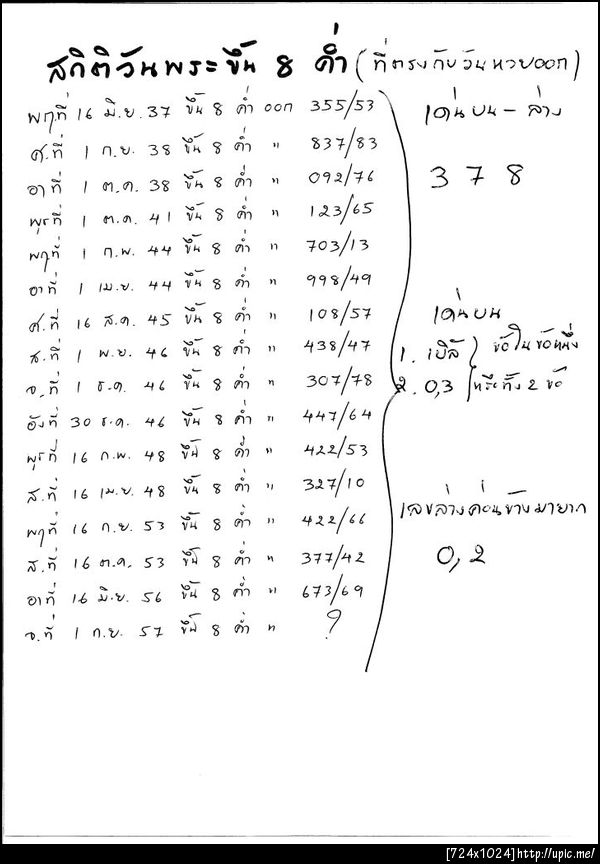 สถิติวันพระขึ้น 8 ค่ำ (ที่ตรงกับวันหวยออก)
พฤที่ 16 มิ.ย. 37 ขึ้น 8 ค่ำ ออก 355/53
ศ.ที่ 1 ก.ย. 38 ขึ้น 8 ค่ำ " 837/83
อาที่ 1 ต.ค. 38 ขึ้น 8 ค่ำ " 092/76
พุธที่ 1 ต.ค. 41 ขึ้น 8 ค่ำ " 123/65
พฤที่ 1 ก.พ. 44 ขึ้น 8 ค่ำ " 703/13
อาที่ 1 เม.ย. 44 ขึ้น 8 ค่ำ " 998/49
ศ.ที่ 16 ส.ค. 45 ขึ้น 8 ค่ำ " 108/57
ส.ที่ 1 พ.ย. 46 ขึ้น 8 ค่ำ " 438/47
จ.ที่ 1 ธ.ค. 46 ขึ้น 8 ค่ำ " 307/78
อังที่ 30 ธ.ค. 46 ขึ้น 8 ค่ำ " 447/64
พุธที่ 16 ก.พ. 48 ขึ้น 8 ค่ำ " 422/53
ส.ที่ 16 เม.ย. 48 ขึ้น 8 ค่ำ " 327/10
พฤที่ 16 ก.ย. 53 ขึ้น 8 ค่ำ " 422/66
ส.ที่ 16 ต.ค. 53 ขึ้น 8 ค่ำ " 377/42
อาที่ 16 มิ.ย. 56 ขึ้น 8 ค่ำ " 673/69
จ.ที่ 1 ก.ย. 57 ขึ้น 8 ค่ำ " ?
เด่นบน - ล่าง
3 7 8
เด่นบน
1. เบิ้ล ข้อใดข้อหนึ่ง
2. 0,3 หรือทั้ง 2 ข้อ
เลขล่างค่อนข้างมายาก
0, 2
[724x1024]http://upic.me/